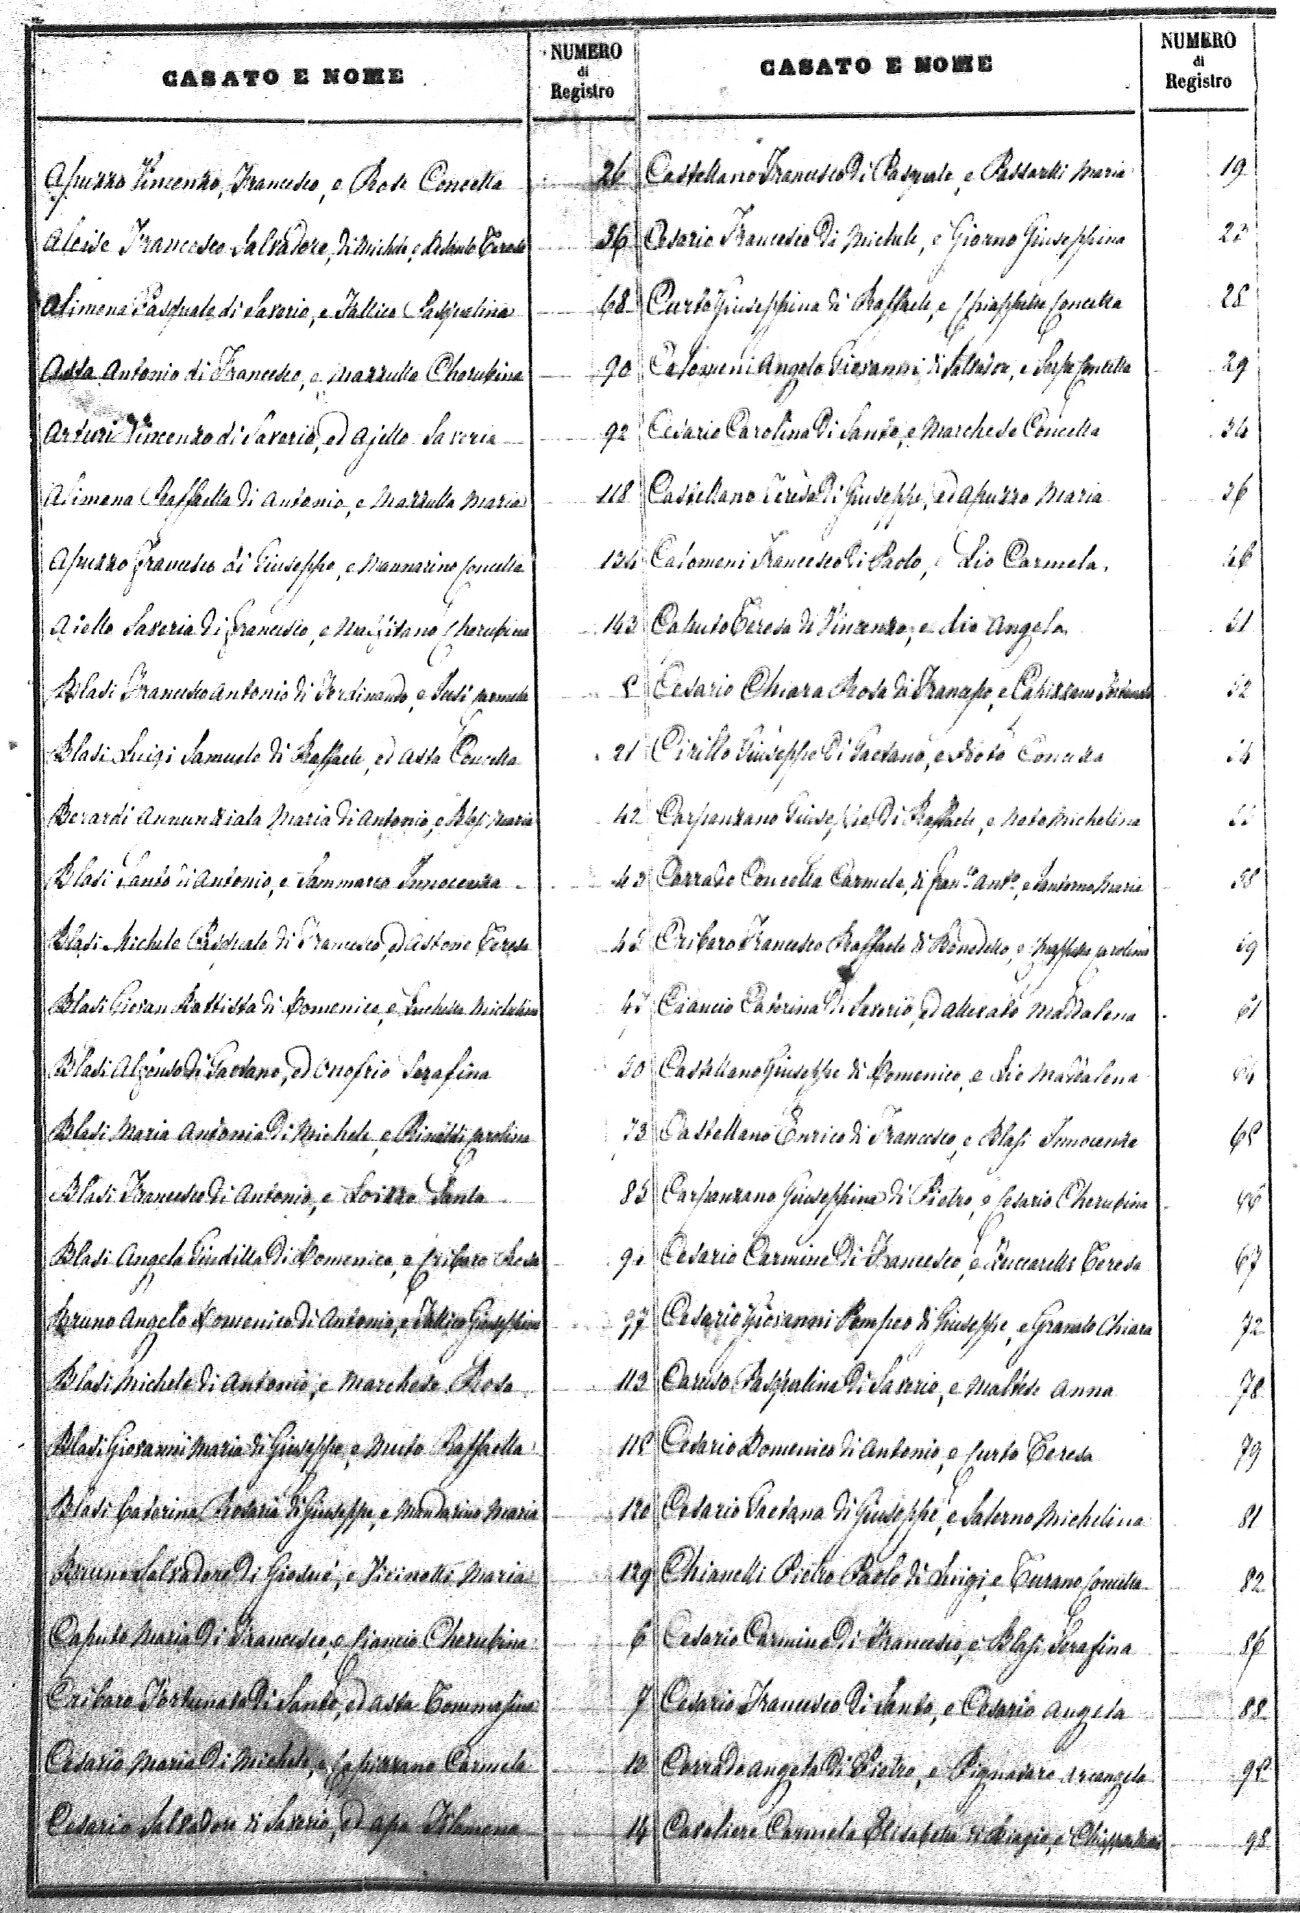 CASATO E NOME
NUMERO
di
Registro
Apuzzo Vincenzo, Francesco, e Rose Concetta 26
Aloise Francesco Salvadore, di Michele, e Teresa 36
Alimena Pasquale di Saverio, e Tallico Pasqualina 68
Assa Antonio di Francesco, e Mazzulla Cherubina 90
Arturi Vincenzo di Saverio, ed Ajello Saveria 92
Alimena Raffaella di Antonio, e Mazzulla Maria 118
Apuzzo Francesco di Giuseppe, e Mannarino Concetta 134
Aiello Saveria di Francesco, e Cherubina 143
Blasi Francesco Antonio di Ferdinando, e Carmela
Blasi Luigi Samuele di Raffaele, ed Assa Concetta 21
Berardi Annunziata Maria di Antonio, e Blasi Maria 42
Blasi Santo di Antonio, e Sammarco Innocenza 43
Blasi Michele Pasquale di Francesco, ed Astone Teresa
Blasi Giovan Battista di Domenico, e Michelina
Blasi Alfonso di Gaetano, ed Onofrio Serafina 50
Blasi Maria Antonia di Michele, e Rinaldi Carolina 73
Blasi Francesco di Antonio, e Loizzo Santa 85
Blasi Angela Giuditta di Domenico, e Cribaro Rosa
Bruno Angelo Domenico di Antonio, e Tallico Giuseppina 97
Blasi Michele di Antonio, e Marchese Rosa 113
Blasi Giovanni Maria di Giuseppe, e Muto Raffaella
Blasi Caterina Rosaria di Giuseppe, e Mandarino Maria 120
Bruno Salvadore di Giosuè, e Vicinotti Maria 129
Caputo Maria di Francesco, e Ciancio Cherubina 6
Cribaro Fortunata di Santo, ed Assa Tommasina 7
Cesario Maria di Michele, e Capizzano Carmela
Cesario Salvadore di Saverio, ed Apa Filomena 14
CASATO E NOME
NUMERO
di
Registro
Castellano Francesco di Pasquale, e Passarelli Maria 19
Cesario Francesco di Michele, e Giorno Giuseppina 23
Curto Giuseppina di Raffaele, e Chiappetta Concetta 28
Calomeni Angelo Giovanni di Salvadore, e Serpe Concetta 29
Cesario Carolina di Santo, e Marchese Concetta 34
Castellano Teresa di Giuseppe, ed Apuzzo Maria
Calomeni Francesco di Paolo, e Lio Carmela. 46
Caputo Teresa di Vincenzo, e Lio Angela 51
Cesario Chiara Rosa di Francesco, e Capizzano 52
Cirillo Giuseppe di Gaetano, e Noto Concetta 54
Carpanzano Giuseppe di Raffaele, e Noto Michelina
Corrado Concetta Carmela, di Fran.o Ant.o, e Santorno Maria 58
Cribaro Francesco Raffaele di Benedetto, e Carolina 59
Ciancio Caterina di Saverio, ed Altimari Maddalena 61
Castellano Giuseppe di Domenico, e Lio Maddalena 64
Castellano Enrico di Francesco, e Blasi Innocenza 65
Carpanzano Giuseppina di Pietro, e Cesario Cherubina 66
Cesario Carmine di Francesco, e Zuccarelli Teresa 67
Cesario Giovanni Pompeo di Giuseppe, e Granato Chiara 72
Caruso Pasqualina di Saverio, e Maltese Anna 78
Cesario Domenico di Antonio, e Curto Teresa 79
Cesario Gaetana di Giuseppe, e Salerno Michelina 81
Chianelli Pietro Paolo di Luigi, e Turano Concetta 82
Cesario Carmine di Francesco, e Blasi Serafina 86
Cesario Francesco di Santo, e Cesario Angela 88
Corrado Angela di Pietro, e Pignataro Arcangela 95
Cavaliere Carmela Elisabetta di Biagio, e 98